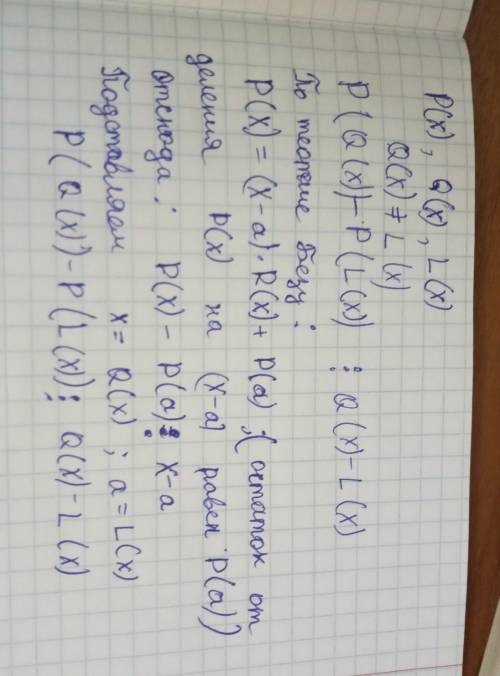 P(x), Q(x), L(x)
Q(x) ≠ L(x)
P(Q(x)) - P(L(x)) ⋮ Q(x) - L(x)
По теореме Безу:
P(x) = (x-a)·R(x) + P(a) ;( остаток от
деления P(x) на (x-a) равен P(a))
Отсюда: P(x) - P(a) ⋮ x-a
Подставляем x = Q(x) ; a = L(x)
P(Q(x)) - P(L(x)) ⋮ Q(x) - L(x)